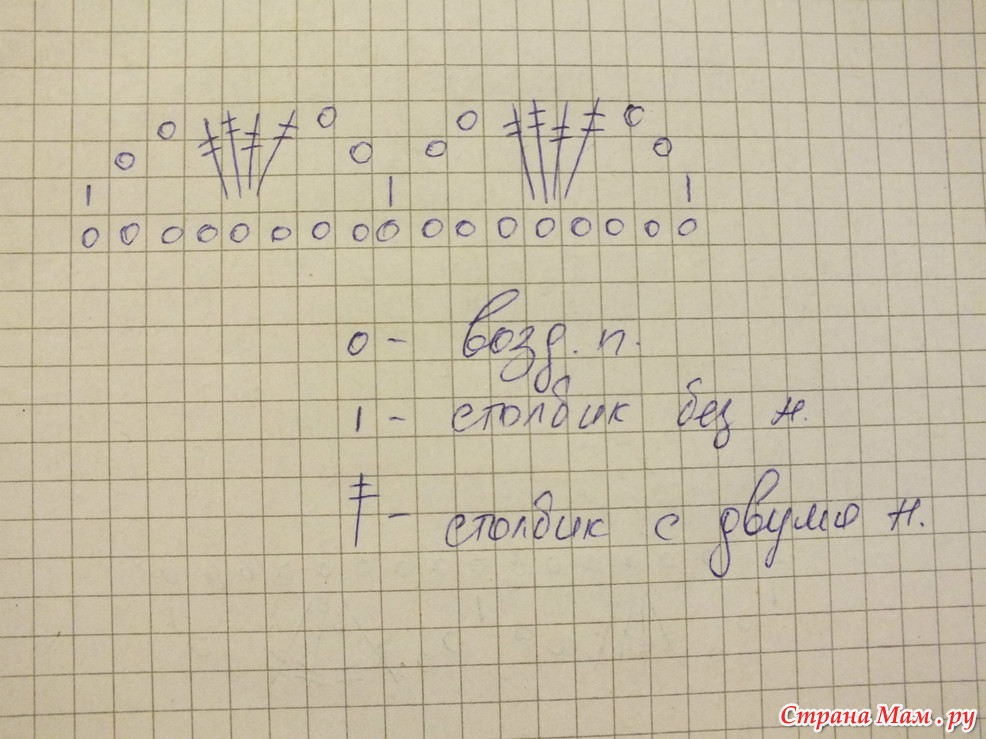 о - возд. п.
ı - столбик без н.
‡ - столбик с двумя н.
Страна Мам.ру